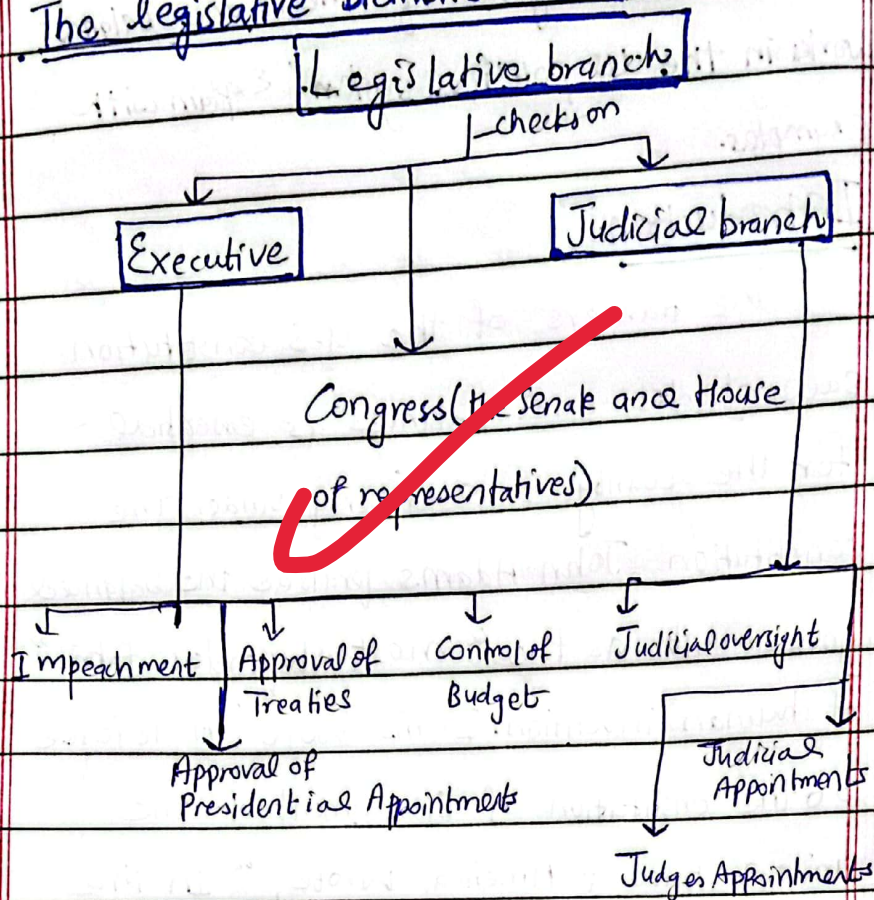 The legislative
Legislative branch
checks on
Executive
Judicial branch
Congress (the Senate and House
of representatives)
Impeachment
Approval of
Treaties
Control of
Budget
Judicial oversight
Approval of
Presidential Appointments
Judicial
Appointments
Judges Appointments